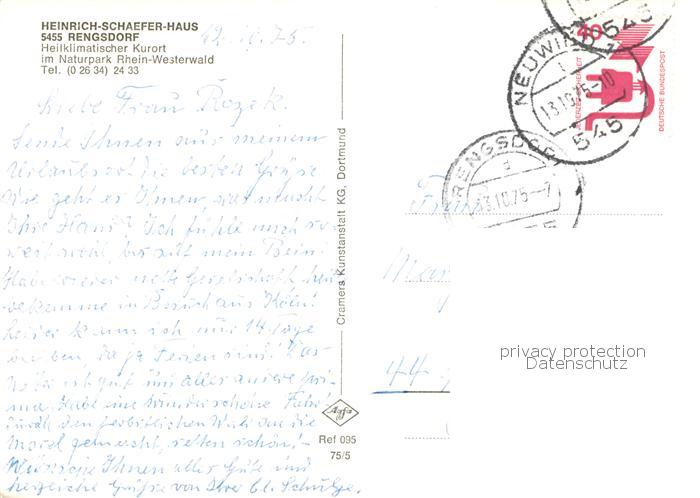 HEINRICH-SCHAEFER-HAUS
5455 RENGSDORF
Heilklimatischer Kurort
im Naturpark Rhein-Westerwald
Tel. (0 26 34) 24 33
Liebe Frau Rozek.
Sende Ihnen aus meinem
Urlaubsort die besten Grüße
Wie geht es Ihnen, was macht
Ihre Hand? Ich fühle mich so
weit wohl, bis auf mein Bein!
Habe wieder nette Gesellschaft, heut
bekomme ich Besuch aus Köln!
Leider kann ich nur 14 Tage
bleiben, da ja Ferien sind! Das
ist gut und alles andere pri-
ma. Habe eine wunderschöne Fahrt
durch den herbstlichen Wald an die
Mosel gemacht, selten schön!
Wünsche Ihnen alles Gute und
herzliche Grüße von Ihrer Cl. Schulze.
Cramers Kunstanstalt KG, Dortmund
Agfa
Ref 095
75/5
NEUWIED 1
13.10.75-10
545
545
RENGSDORF
a
13.10.75-7
40
JEDERZEIT SICHERHEIT
DEUTSCHE BUNDESPOST
44
privacy protection
Datenschutz